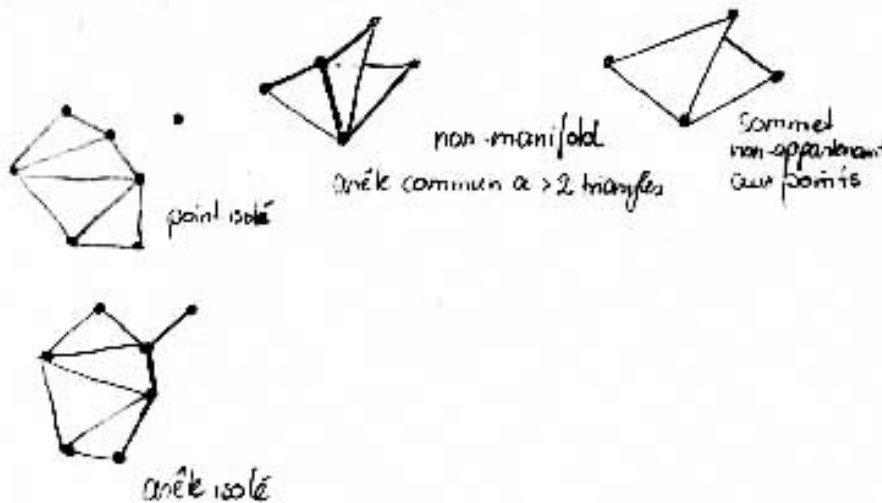 point isolé
non-manifold
arête commun a > 2 triangles
sommet
non-appartenant
aux points
arête isolé